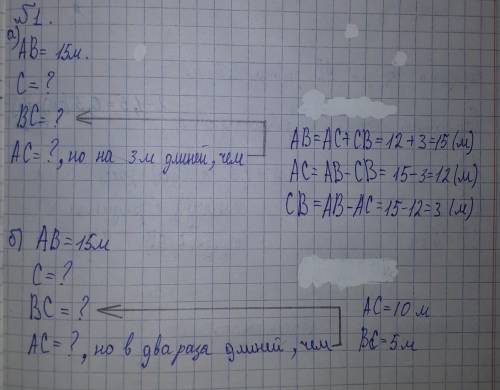 №1.
а)
AB= 15м.
C= ?
BC= ?
AC= ?, но на 3м длиней, чем
AB=AC+CB=12+3=15(м)
AC=AB-CB=15-3=12(м)
CB=AB-AC=15-12=3(м)
б) AB=15м
C= ?
BC= ?
AC= ?, но в два раза длиней, чем
AC=10м
BC=5м